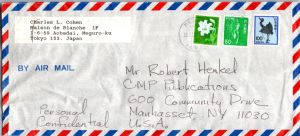 Charles L. Cohen
Maison de Blanche 1F
1-6-59 Aobadai, Meguro-ku
Tokyo 153. Japan
60
100
BY AIR MAIL
Mr Robert Henkel
CMP Publications
600 Community Drive
Manhasset NY 11030
U.S.A.
Personal
Confidential